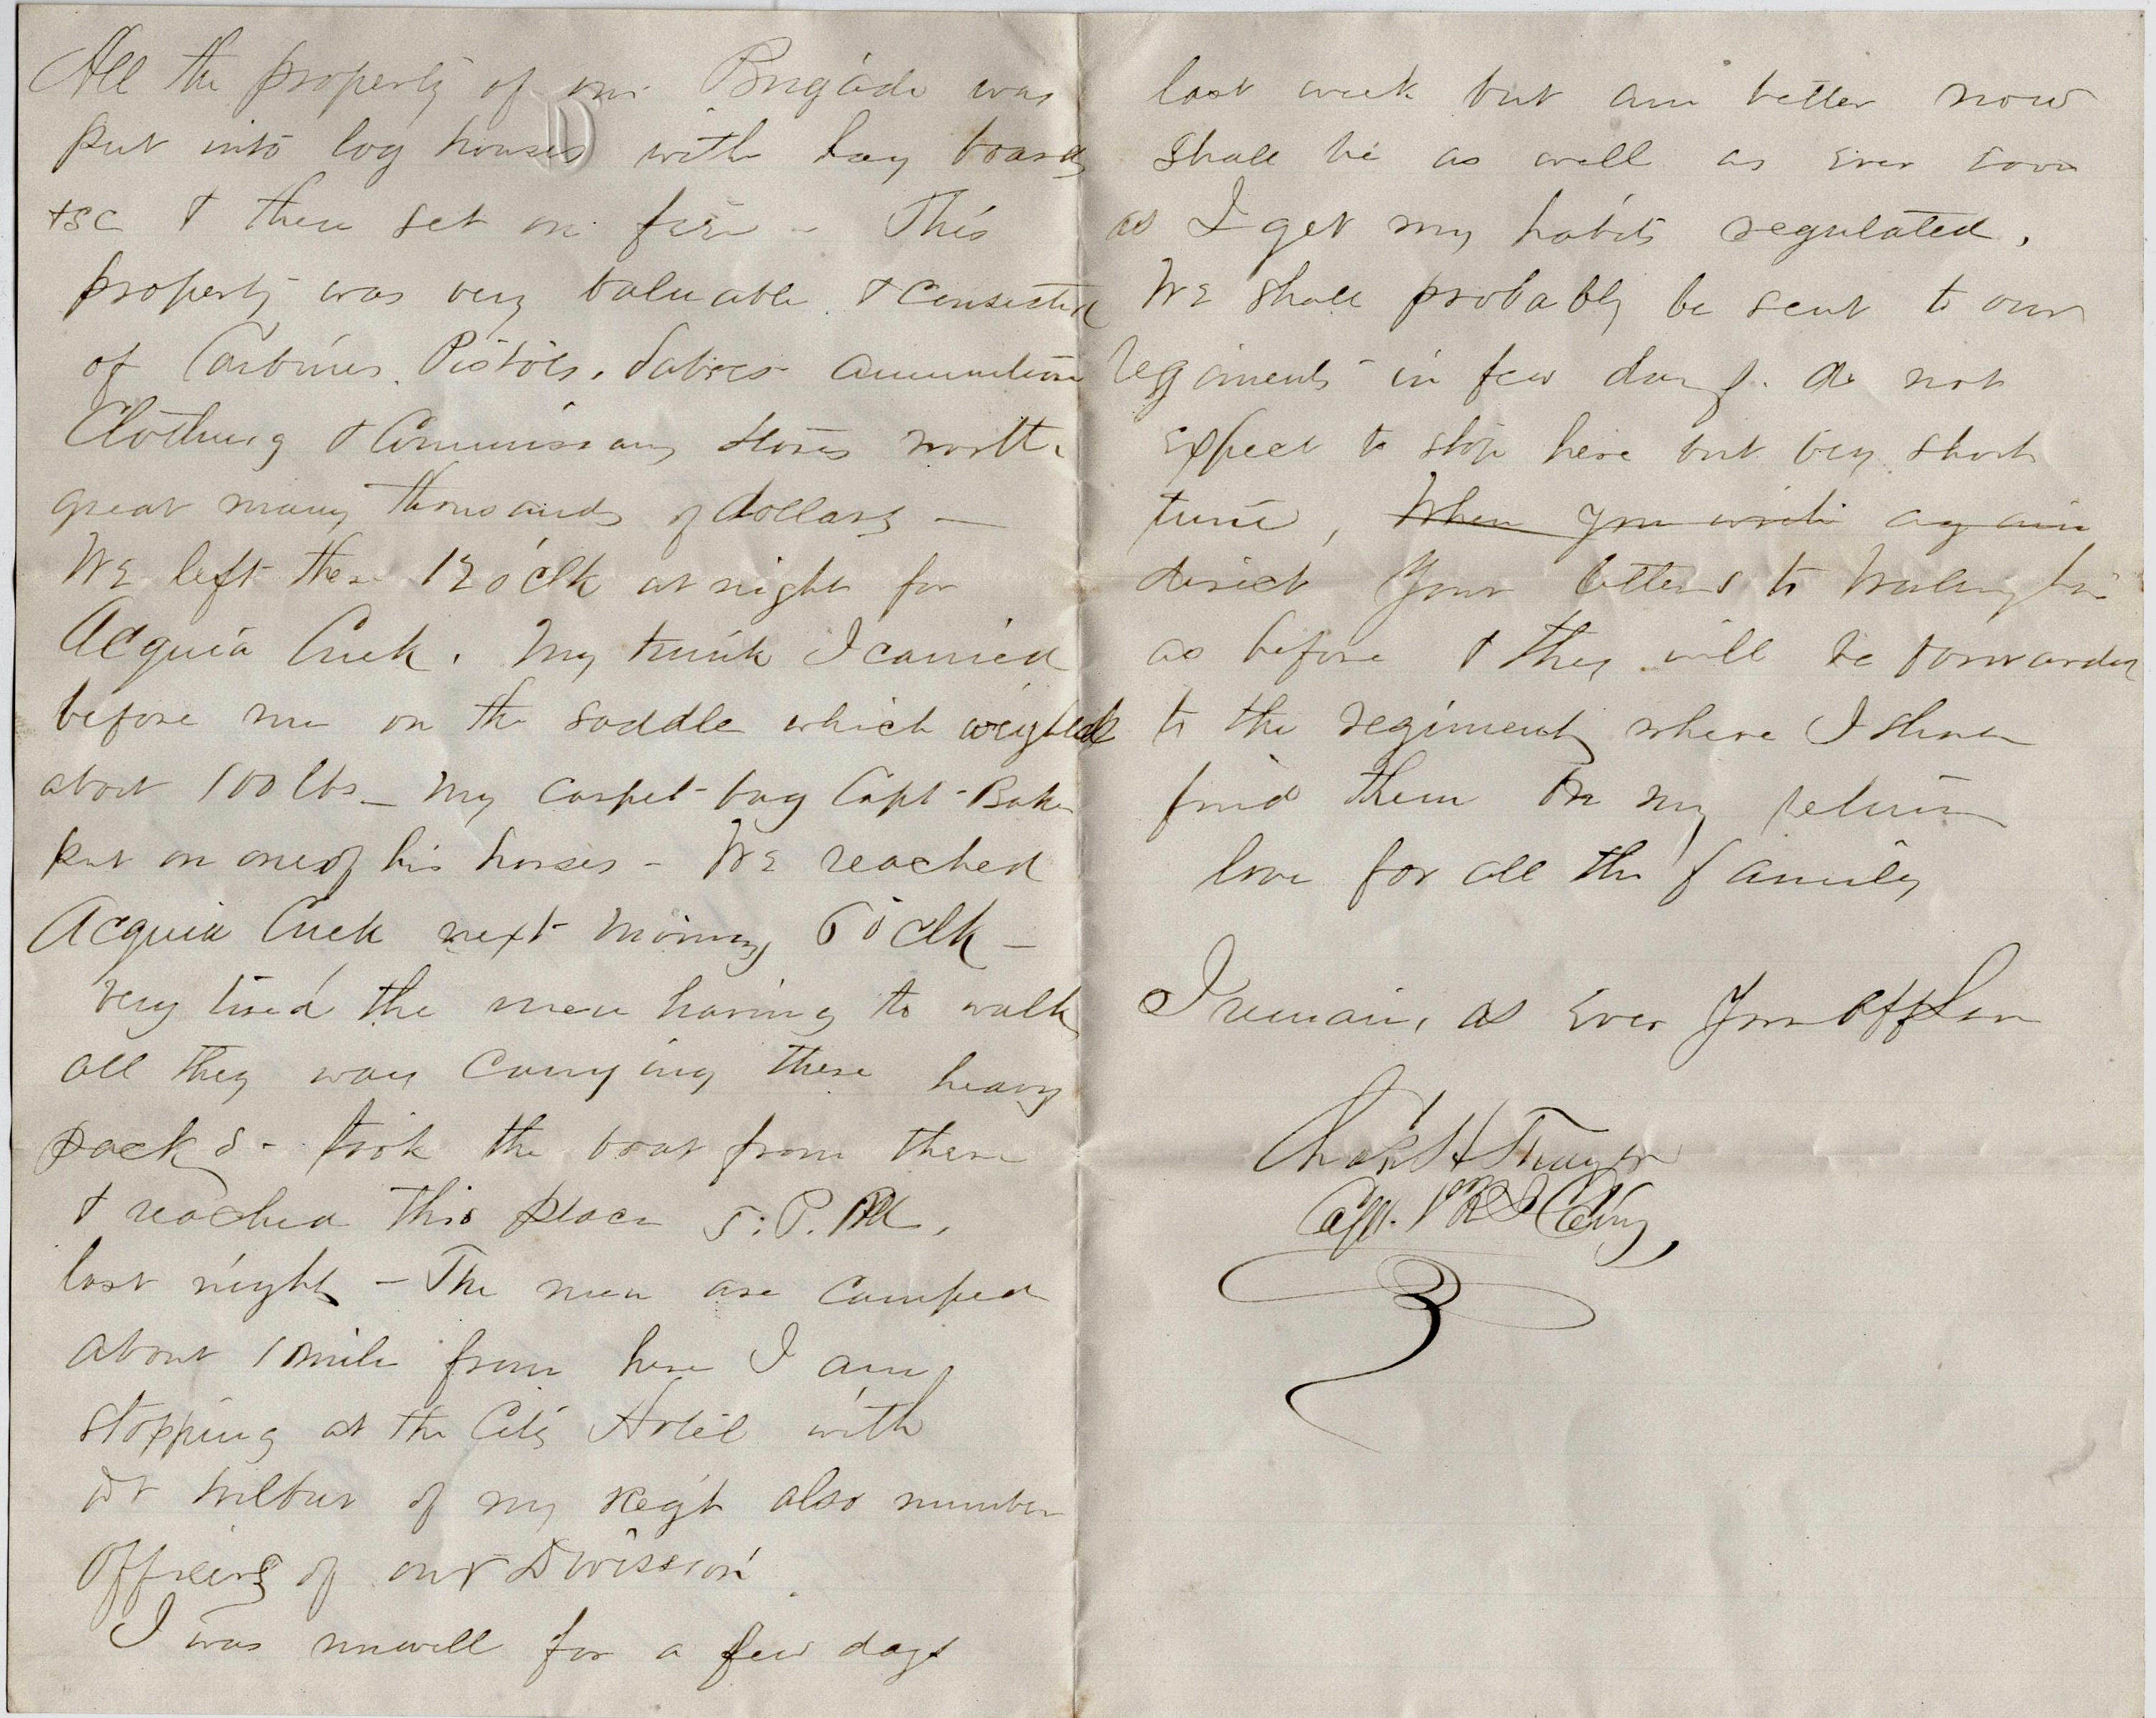 All the property of our Brigade was
put into log houses with hay boards
&c & then set on fire - This
property was very valuable & consisted
of Carbines, Pistols, Sabres ammunition
Clothing & Commissary Stores worth a
great many thousands of dollars —
We left there 12 o'clk at night for
Acquia Creek. My trunk I carried
before me on the saddle which weighed
about 100 lbs — My carpet-bag Capt-Baker
put on one of his horses - We reached
Acquia Creek next morning 6 o'clk —
very tired the men having to walk
all they way carrying these heavy
packs - took the boat from there
& reached this place 5: P.M.,
last night - The men are camped
about 1 mile from here I am
stopping at the City Hotel with
Dr Wilbur of my Regt also number
officers of our Division
I was unwell for a few days
last week but am better now
Shall be as well as ever soon
as I get my habits regulated.
We shall probably be sent to our
regiments in few days. do not
expect to stop here but very short
time, When you write again
direct your letters to Washington
as before & they will be forwarded
to the regiment where I shall
find them on my return
love for all the family
I remain, as Ever Your aff Son
Chas H Thayer
Capt. 1st R I Calvy,